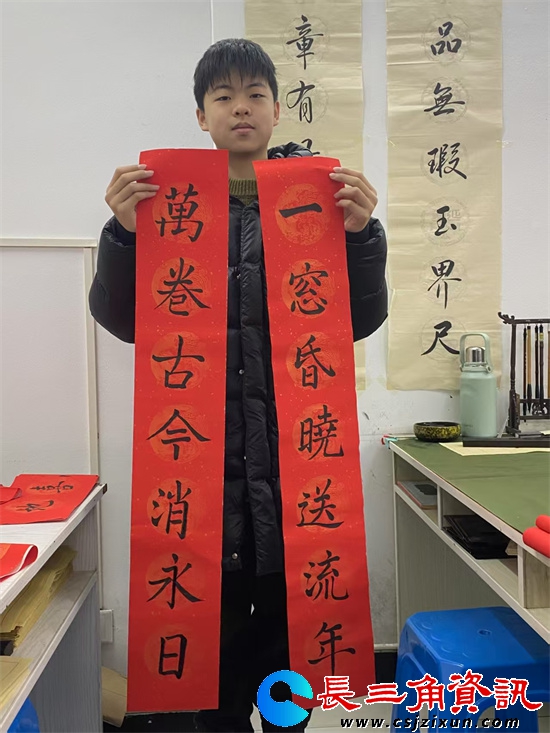 萬卷古今消永日
一窓昏曉送流年
章有
品無瑕玉界尺
長三角資訊
www.csjzixun.com